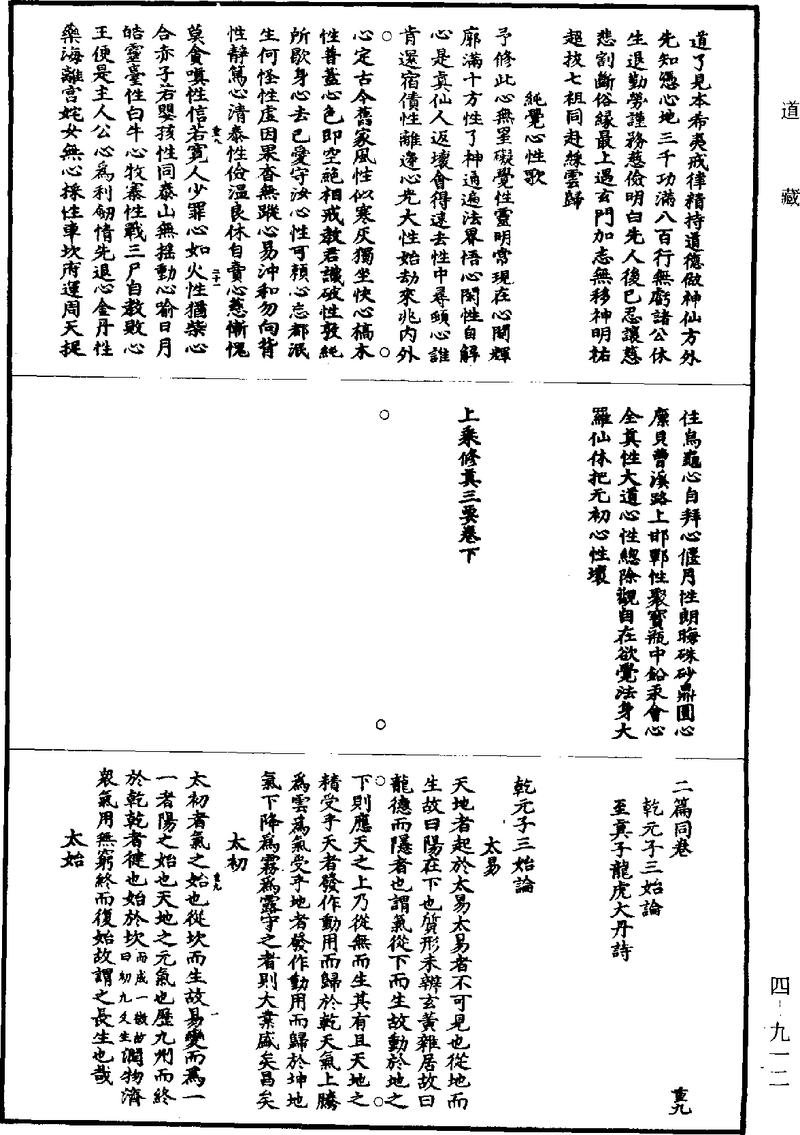 道藏
道了見本希夷戒律精持道德做神仙方外
先知憑心地三千功滿八百行無虧諸公休
生退勤勞謹務慈儉明白先人後已忍讓慈
悲割斷俗緣最上遇玄門加志無移神明祐
超拔七祖同赴綵雲歸
純覺心性歌
予修此心無罣礙覺性靈明常現在心閑輝
廓滿十方性了神通遍法界悟心閑性自解
心是真仙人返壞會得遠去性中尋頤心誰
肯還宿債性離逢心光大性始劫來兆內外
心定古今舊家風性似寒灰獨坐快心槁木
性普蓋心色即空絕相戒教君識破性孩純
所歇身心去已愛守汝心性可賴心忘都泯
生何怪性虛因果杳無蹤心易沖和勿向背
性靜篤心清泰性儉溫良休自賣心慈慚愧
莫貪嗔性信若寬人少罪心如火性猶柴心
合赤子若嬰孩性同泰山無搖動心喻日月
皓靈臺性白牛心牧寨性戰三尸自教敗心
王便是主人公心為利劒情先退心金丹性
藥海離宮姹女無心採性車坎府運周天捉
住烏龜心自拜心偃月性朗晦硃砂鼎圓心
廪貝曹溪路上邯鄲性聚寶瓶中鉛汞會心
全真性大道心性總除觀自在欲覺法身大
羅仙休把元初心性壞
上乘修真三要卷下
二篇同卷
乾元子三始論
至真子龍虎大丹詩
乾元子三始論
太易
天地者起於太易太易者不可見也從地而
生故曰陽在下也質形未辨玄黃雜居故曰
龍德而隱者也謂氣從下而生故動於地之
下則應天之上乃從無而生其有且天地之
精受乎天者發作動用而歸於乾天氣上騰
為雲為氣受乎地者發作動用而歸於坤地
氣下降為霧為露守之者則大業盛矣昌矣
太初
太初者氣之始也從坎而生故易變而為一
一者陽之始也天地之元氣也歷九州而終
於乾乾者健也始於坎而成一數故曰初九爻生潤物濟
衆氣用無窮終而復始故謂之長生也哉
太始
四-九一二
重九